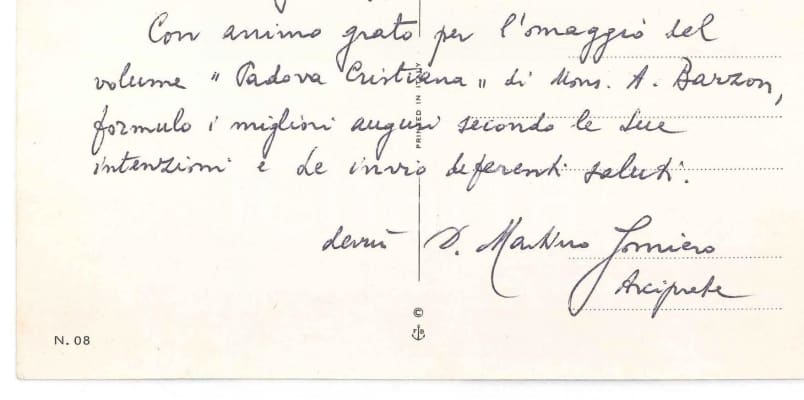 Con animo grato per l'omaggio del
volume "Padova Cristiana" di Mons. A. Barzon,
formulo i migliori auguri secondo le Sue
intenzioni e Le invio deferenti saluti.
D. Martino Gomiero
Arciprete
PRINTED IN ITALY
©
N. 08